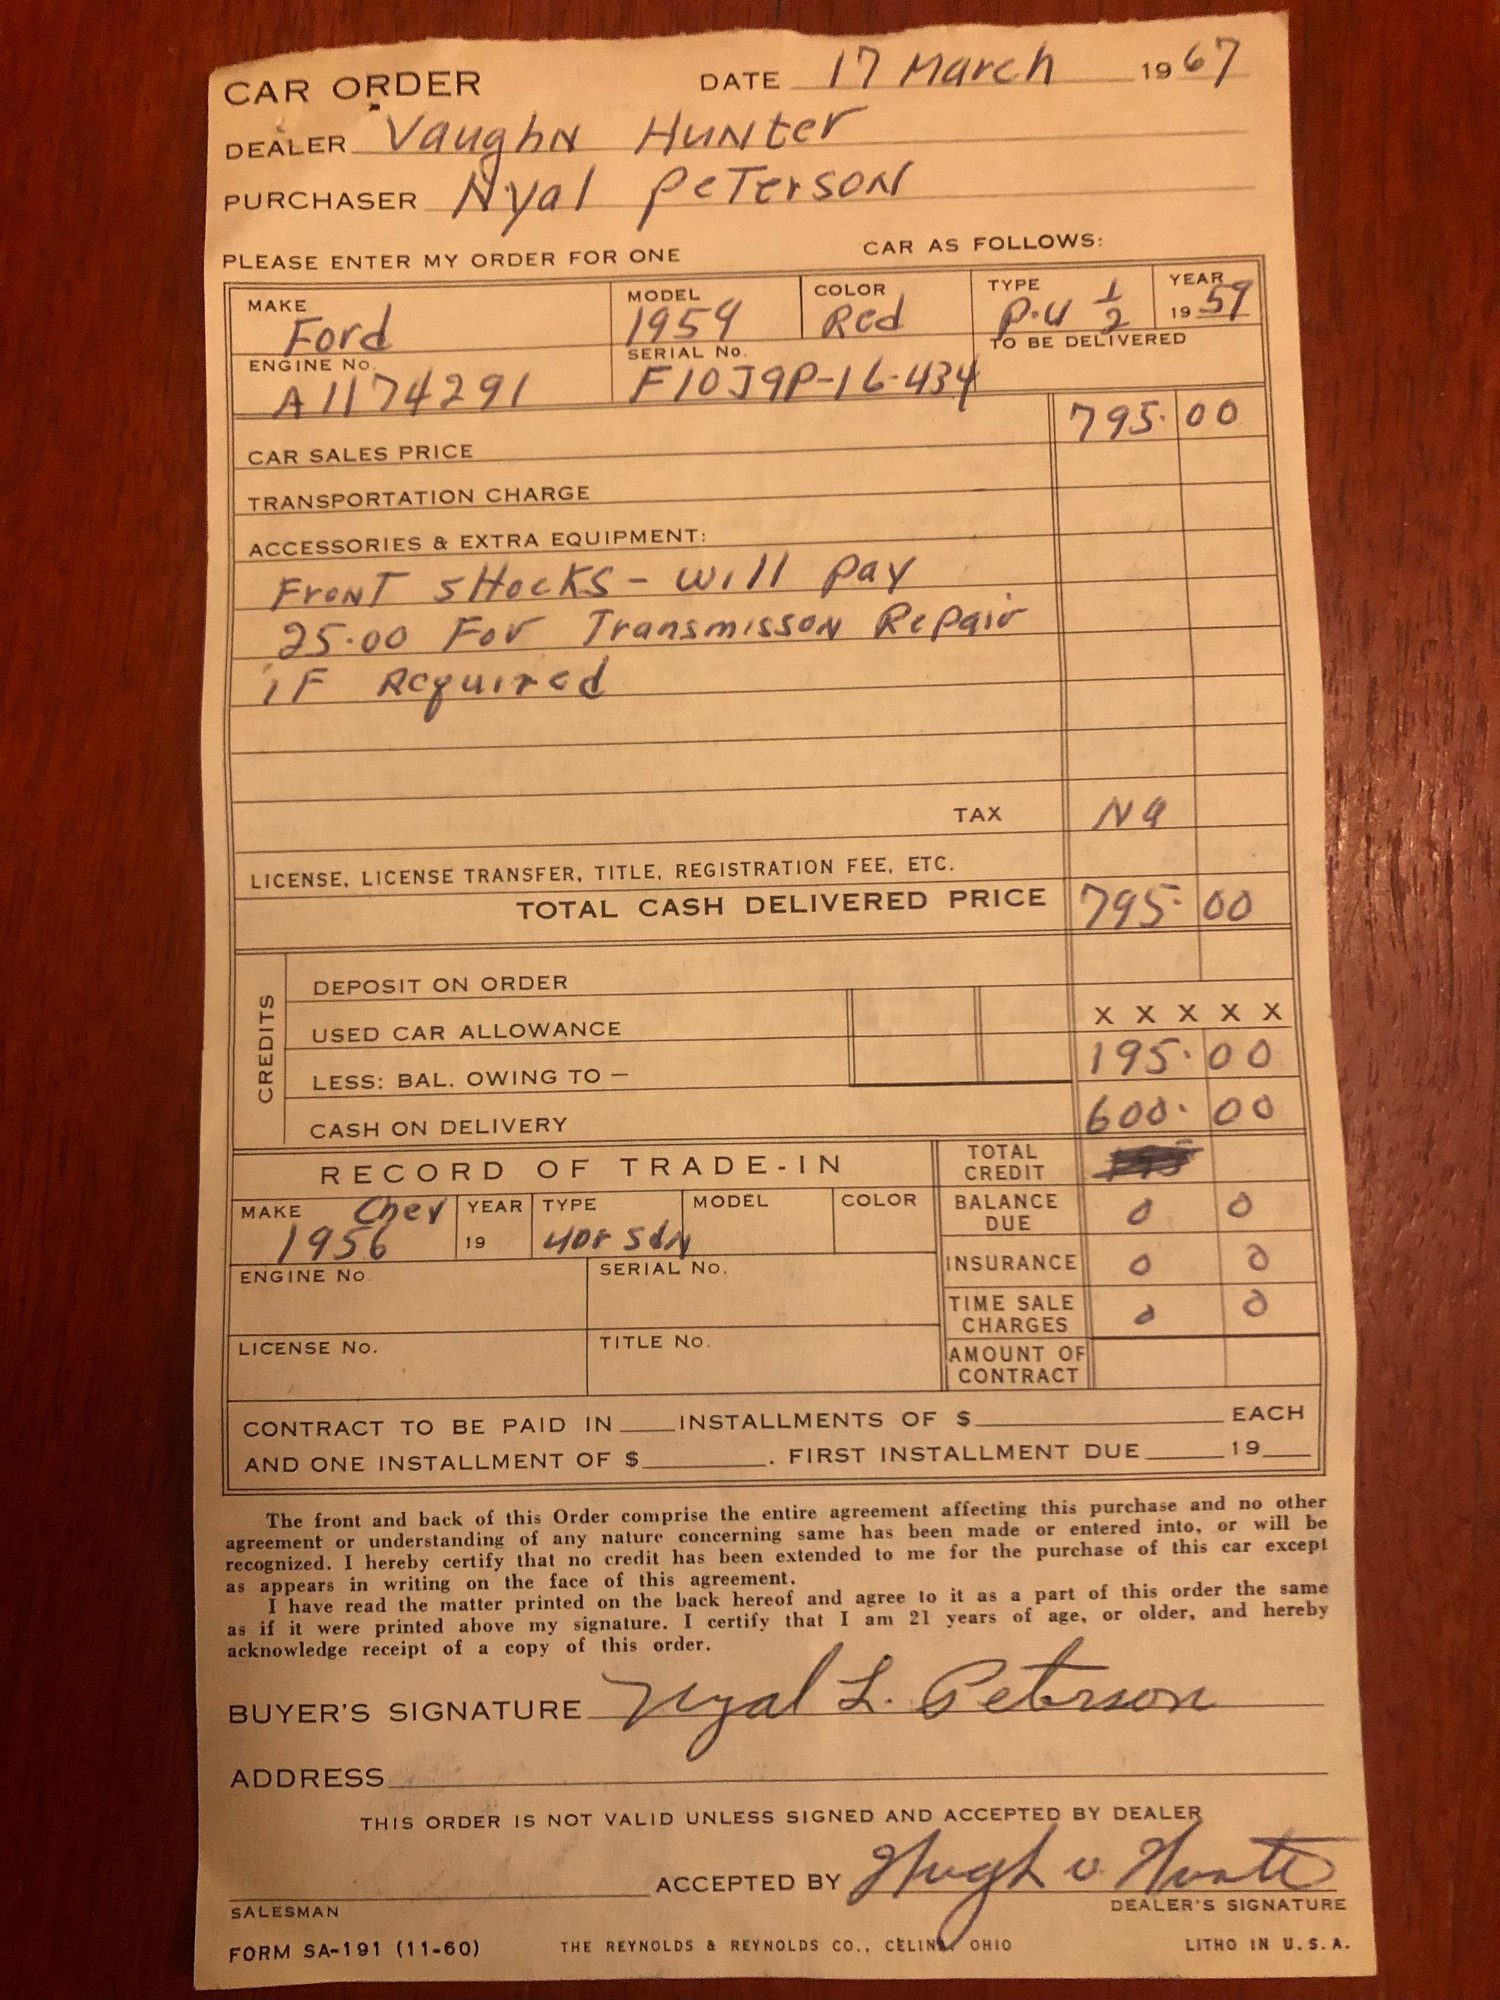 CAR ORDER DATE 17 March 1967
DEALER Vaughn Hunter
PURCHASER Nyal Peterson
PLEASE ENTER MY ORDER FOR ONE CAR AS FOLLOWS:
MAKE MODEL COLOR TYPE YEAR
Ford 1959 Red P.U 1/2 1959
ENGINE No. SERIAL No. TO BE DELIVERED
A1174291 F10J9P-16-434
CAR SALES PRICE 795.00
TRANSPORTATION CHARGE
ACCESSORIES & EXTRA EQUIPMENT:
Front sHocks - will pay
25.00 For Transmisson Repair
iF Required
TAX Na
LICENSE, LICENSE TRANSFER, TITLE, REGISTRATION FEE, ETC.
TOTAL CASH DELIVERED PRICE 795.00
CREDITS
DEPOSIT ON ORDER
USED CAR ALLOWANCE X X X X X
LESS: BAL. OWING TO — 195.00
CASH ON DELIVERY 600.00
RECORD OF TRADE-IN TOTAL CREDIT
MAKE Chev YEAR TYPE MODEL COLOR BALANCE DUE 0 0
1956 19 4Dr Sdn
ENGINE No. SERIAL No. INSURANCE 0 0
TIME SALE CHARGES 0 0
LICENSE No. TITLE No. AMOUNT OF CONTRACT
CONTRACT TO BE PAID IN ___ INSTALLMENTS OF $ ___ EACH
AND ONE INSTALLMENT OF $ ___. FIRST INSTALLMENT DUE ___ 19___
The front and back of this Order comprise the entire agreement affecting this purchase and no other
agreement or understanding of any nature concerning same has been made or entered into, or will be
recognized. I hereby certify that no credit has been extended to me for the purchase of this car except
as appears in writing on the face of this agreement.
I have read the matter printed on the back hereof and agree to it as a part of this order the same
as if it were printed above my signature. I certify that I am 21 years of age, or older, and hereby
acknowledge receipt of a copy of this order.
BUYER'S SIGNATURE Nyal L. Peterson
ADDRESS
THIS ORDER IS NOT VALID UNLESS SIGNED AND ACCEPTED BY DEALER
ACCEPTED BY Hugh V. Hunter
SALESMAN DEALER'S SIGNATURE
FORM SA-191 (11-60) THE REYNOLDS & REYNOLDS CO., CELINA, OHIO LITHO IN U.S.A.